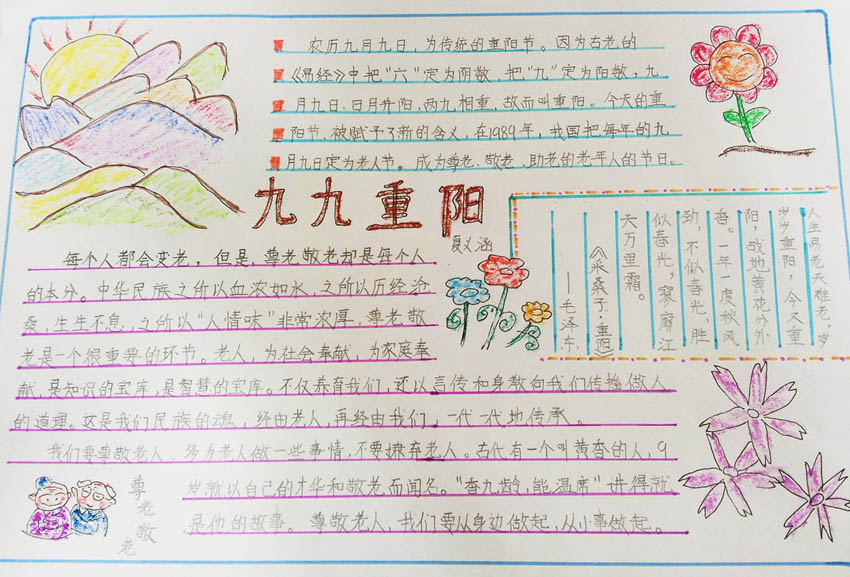 农历九月九日，为传统的重阳节。因为古老的
《易经》中把“六”定为阴数，把“九”定为阳数，九
月九日，日月并阳，两九相重，故而叫重阳。今天的重
阳节，被赋予了新的含义，在1989年，我国把每年的九
月九日定为老人节。成为尊老、敬老、助老的老年人的节日。
九九重阳
夏义涵
人生易老天难老，岁
岁重阳，今又重
阳，战地黄花分外
香。一年一度秋风
劲，不似春光，胜
似春光，寥廓江
天万里霜。
《采桑子·重阳》
——毛泽东
每个人都会变老，但是，尊老敬老却是每个人
的本分。中华民族之所以血浓如水，之所以历经沧
桑，生生不息，之所以“人情味”非常浓厚，尊老敬
老是一个很重要的环节。老人，为社会奉献，为家庭奉
献，是知识的宝库，是智慧的宝库。不仅养育我们，还以言传和身教向我们传播做人
的道理。这是我们民族的魂，经由老人，再经由我们，一代一代地传承。
我们要尊敬老人，多为老人做一些事情，不要嫌弃老人。古代有一个叫黄香的人，9
岁就以自己的才华和敬老而闻名。“香九龄，能温席”讲得就
是他的故事。尊敬老人，我们要从身边做起，从小事做起。
尊老敬老